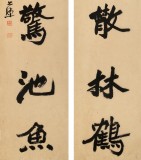 散林鶴
驚池魚